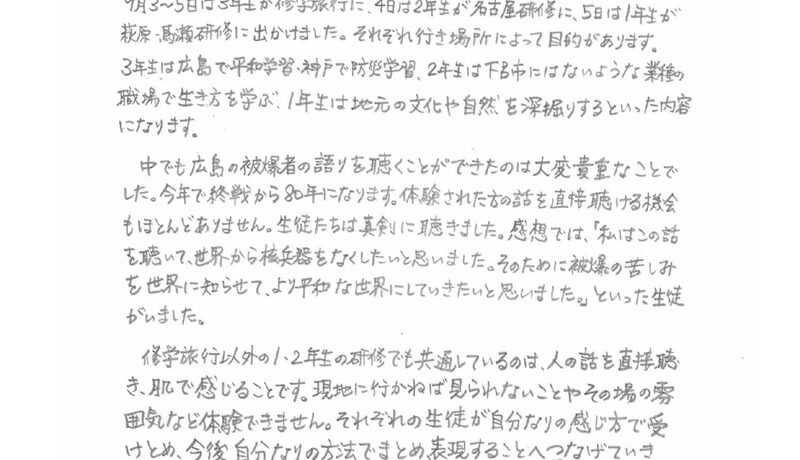 9月3～5日は3年生が修学旅行に、4日は2年生が名古屋研修に、5日は1年生が
萩原・馬瀬研修に出かけました。それぞれ行き場所によって目的があります。
3年生は広島で平和学習・神戸で防災学習、2年生は下呂市にはないような業種の
職場で生き方を学ぶ、1年生は地元の文化や自然を深掘りするといった内容
になります。
中でも広島の被爆者の語りを聴くことができたのは大変貴重なことで
した。今年で終戦から80年になります。体験された方の話を直接聴ける機会
もほとんどありません。生徒たちは真剣に聴きました。感想では、「私はこの話
を聴いて、世界から核兵器をなくしたいと思いました。そのために被爆の苦しみ
を世界に知らせて、より平和な世界にしていきたいと思いました。」といった生徒
がいました。
修学旅行以外の1・2年生の研修でも共通しているのは、人の話を直接聴
き、肌で感じることです。現地に行かねば見られないことやその場の雰
囲気など体験できません。それぞれの生徒が自分なりの感じ方で受
けとめ、今後自分なりの方法でまとめ、表現することへつなげていき